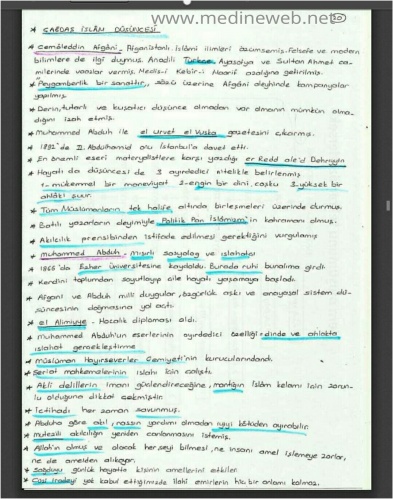 www.medineweb.net
* ÇAĞDAŞ İSLÂM DÜŞÜNCESİ
* Cemâleddin Afgânî, Afganistanlı. İslâmi ilimleri özümsemiş. Felsefe ve modern
bilimlere de ilgi duymuş. Anadili Türkçe. Ayasofya ve Sultan Ahmet ca-
milerinde vaazlar vermiş. Meclis-i Kebir-i Maarif azalığına getirilmiş.
* "Peygamberlik bir sanattır," sözü üzerine Afgâni aleyhinde kampanyalar
yapılmış.
* Derin, tutarlı ve kuşatıcı düşünce olmadan var olmanın mümkün olma-
dığını izah etmiş.
* Muhammed Abduh ile el Urvet el Vuska gazetesini çıkarmış.
* 1892'de II. Abdülhamid onu İstanbul'a davet etti.
* En önemli eseri materyalistlere karşı yazdığı er Redd ale'd Dehriyyin
* Hayatı da düşüncesi de 3 ayırdedici nitelikle belirlenmiş
1-mükemmel bir maneviyat 2-engin bir dini coşku 3-yüksek bir
ahlâki şuur.
* Tüm Müslümanların tek halife altında birleşmeleri üzerinde durmuş.
* Batılı yazarların deyimiyle Politik Pan İslâmizm'in kahramanı olmuş.
* Akılcılık prensibinden istifade edilmesi gerektiğini vurgulamış
* Muhammed Abduh - Mısırlı sosyolog ve ıslahatçı
* 1866'da Ezher Üniversitesine kaydoldu. Burada ruhi bunalıma girdi.
* Kendini toplumdan soyutlayıp çile hayatı yaşamaya başladı.
* Afgani ve Abduh milli duygular, özgürlük aşkı ve anayasal sistem dü-
şüncesinin doğmasına yol açtı.
* el Alimiyye - Hocalık diploması aldı.
* Muhammed Abduh'un eserlerinin ayırdedici özelliği = dinde ve ahlakta
ıslahat gerçekleştirme
* Müslüman Hayırseverler Cemiyeti'nin kurucularındandı.
* Şeriat mahkemelerinin ıslahı için çalıştı.
* Akli delillerin imanı güçlendireceğine, mantığın İslâm kelamı için zorun-
lu olduğuna dikkat çekmiştir.
* İctihadı her zaman savunmuş.
* Abduha göre akıl, nassın yardımı olmadan iyiyi kötüden ayırabilir.
* Mutezili akılcılığın yeniden canlanmasını istemiş.
* Allah'ın olmuş ve olacak herşeyi bilmesi, ne insanı amel işlemeye zorlar,
ne de amelden alıkoyar.
* Sağduyu günlük hayatta kişinin amellerini etkiler.
* Cüzi iradeyi yok kabul ettiğimizde İlahi emirlerin hiç bir anlamı kalmaz.